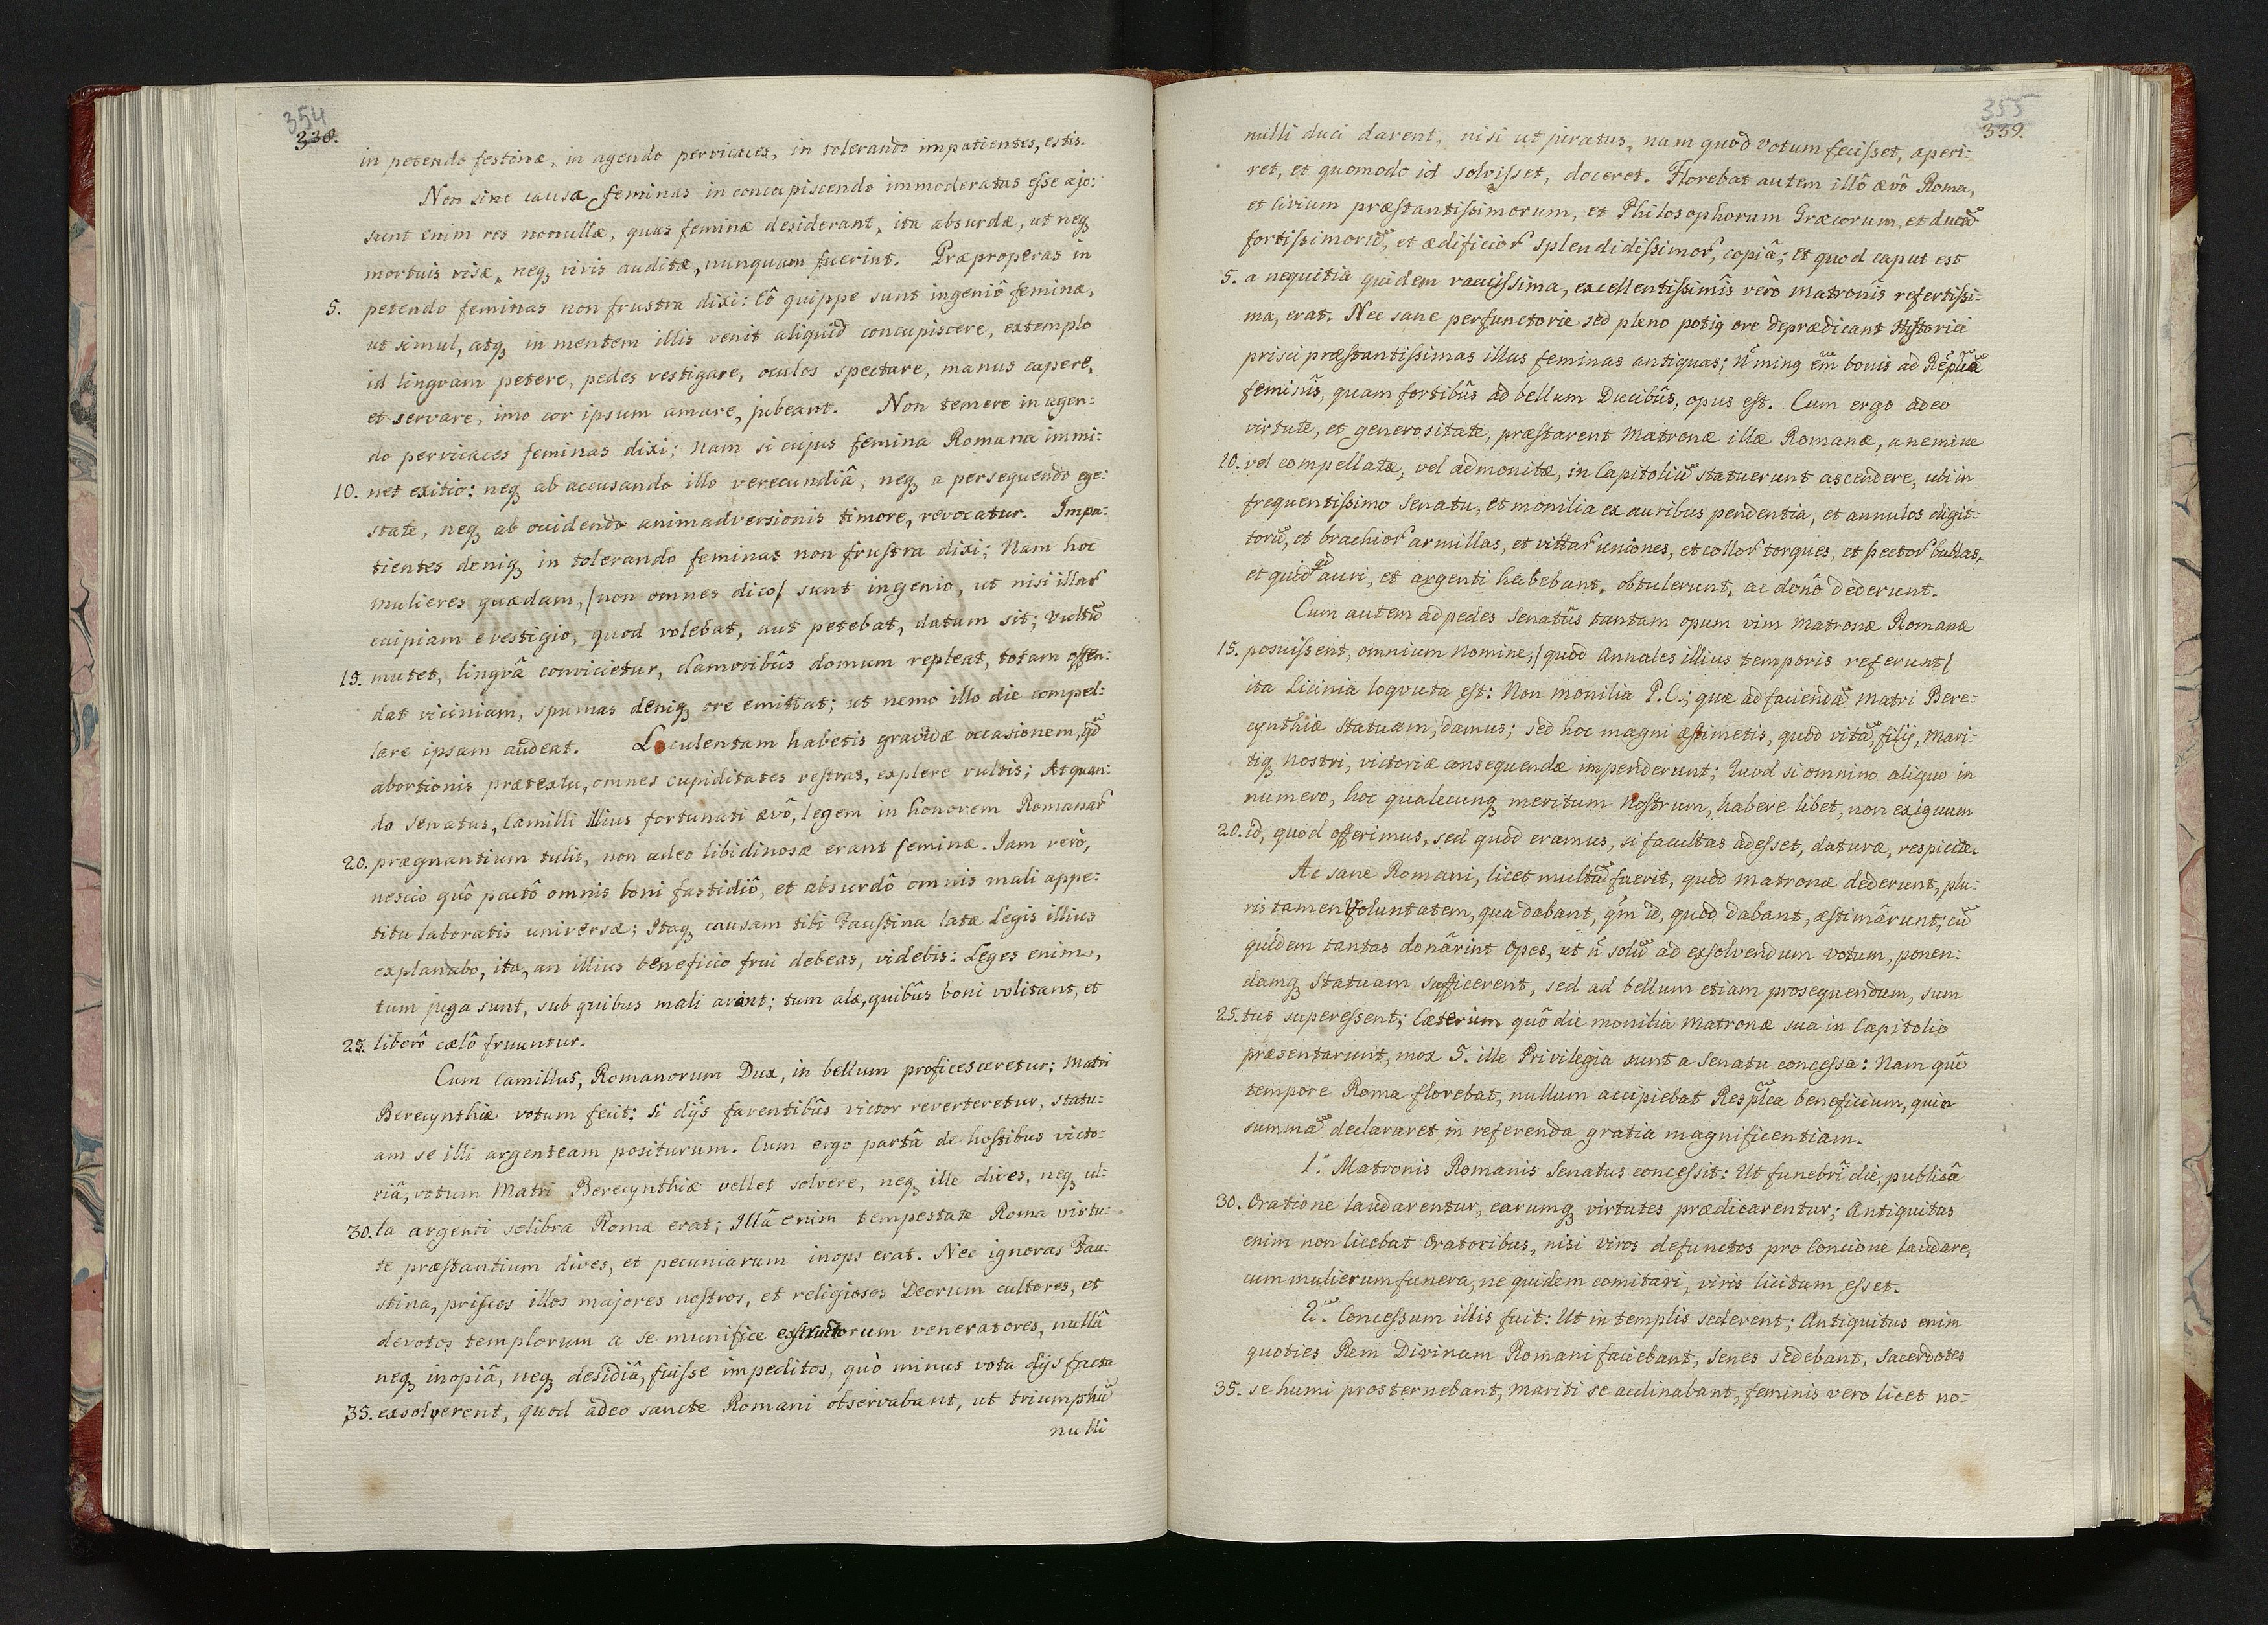 354
338.
in petendo festinæ, in agendo pervicaces, in tolerando impatientes, estis.
Non sine causa feminas in concupiscendo immoderatas eſse ajo:
sunt enim res nonullæ, quas feminæ desiderant, ita absurdæ, ut neq₃
mortuis visæ, neq₃ viris auditæ, nunquam fuerint. Præproperas in
5. petendo feminas non frustra dixi: Eô quippe sunt ingeniô feminæ,
ut simul, atq₃ in mentem illis venit aliquid concupiscere, extemplo
id lingvam petere, pedes vestigare, oculos spectare, manus capere,
et servare, imo cor ipsum amare, jubeant. Non temere in agen:
do pervicaces feminas dixi; Nam si cujus femina Romana immi:
10. net exitio: neq₃ ab accusando illo verecundiâ, neq₃ a persequendo ege:
state, neq₃ ab occidendo animadversionis timore, revocatur. Impa:
tientes deniq₃ in tolerando feminas non fruſtra dixi; Nam hoc
mulieres quædam, /non omnes dico/ sunt ingenio, ut nisi illar̃
cuipiam e vestigio, quod volebat, aut petebat, datum sit; Vultũ
15. mutet, lingvâ convicietur, clamoribûs domum repleat, totam offen:
dat viciniam, spumas deniq₃ ore emittat; ut nemo illo die compel:
lare ipsam audeat. Loculentam habetis gravidæ occasionem, qd̃
abortionis prætextu, omnes cupiditates veſtras, explere vultis; At quan:
do Senatus, Camilli illius fortunati ævô, legem in honorem Romanar̃
20. prægnantium tulit, non adeo libidinosæ erant feminæ. Iam verò,
nescio quô pactô omnis boni fastidiô, et absurdô omnis mali appe:
titu laboratis universæ; Itaq₃ causam tibi Fauſtina latæ Legis illius
explanabo, ita, an illius beneficio frui debeas, videbis: Leges enim,
tum juga sunt, sub quibus mali arant; tum alæ, quibûs boni volitant, et
25. liberô cælô fruuntur.
Cum Camillus, Romanorum Dux, in bellum proficesceretur; Matri
Berecynthiæ votum fecit: Si dijs faventibûs victor reverteretur, statu:
am se illi argenteam positurum. Cum ergo partâ de hoſtibus victo:
riâ, votum Matri Berecynthiæ vellet solvere, neq₃ ille dives, neq₃ ul:
30. la argenti selibra Romæ erat; Illâ enim tempestate Roma virtu:
te præſtantium dives, et pecuniarum inops erat. Nec ignoras Fau:
stina, priſcos illos majores noſtros, et religioses Deorum cultores, et
devotos templorum a se munifice exſtructorum veneratores, nullâ
neq₃ inopiâ, neq₃ desidiâ, fuiſse impeditos, quò minus vota dijs facta
35. exsolverent, quod adeo sancte Romani observabant, ut triumphũ
nulli
355
339.
nulli duci darent, nisi ut juratus, num quod votum feciſset, aperi:
ret, et quomodo id solviſset, doceret. Florebat autem illô ævô Roma,
et Civium præſtantiſsimorum, et Philosophorum Græcorum, et ducũ
fortiſsimorũ, et ædificior̃ splendidiſsimor̃, copiâ; Et quod caput est
5. a nequitia quidem vacuiſsima, excellentiſsimîs verò Matronîs refertiſsi:
ma, erat. Nec sane perfunctorie sed pleno potiq ore deprædicant Hiſtorici
prisci præſtantiſsimas illas feminas antiquas; ñ minq em̃ bonis ad Rẽplcã
feminîs, quam fortibûs ad bellum Ducibûs, opus eſt. Cum ergo adeo
virtute, et generositate, præſtarent Matronæ illæ Romanæ, a nemine
10. vel compellatæ, vel admonitæ, in Capitoliũ statuerunt ascendere, ubi in
frequentiſsimo Senatu, et monilia ex auribus pendentia, et annulos digit:
torũ, et brachior̃ armillas, et vittar̃ uniones, et collor̃ torques, et pector̃ bullas,
et quidqd̃ auri, et argenti habebant, obtulerunt, ac donô dederunt.
Cum autem ad pedes Senatûs tantam opum vim Matronæ Romanæ
15. posuiſsent, omnium Nomine, /quod Annales illius temporis referunt/
ita Licinia loqvuta eſt: Non monilia P.C.; quæ ad faciendã Matri Bere:
cynthiæ Statuam, damus; sed hoc magni æſtimetis, quod vitã, filij, Mari:
tiq₃ noſtri, victoriæ consequendæ impenderunt; Quod si omnino aliquo in
numero, hoc qualecunq₃ meritum Noſtrum, habere libet, non exiguum
20. id, quod offerimus, sed quod eramus, si facultas adeſset, daturæ, respicite.
Ac sane Romani, licet multũ fuerit, quod Matronæ dederunt, plu:
ris tamen Voluntatem, qua dabant, qm̃ id, quod dabant, æſtimârunt; cũ
quidem tantas donârint Opes, ut ñ solũ ad exſolvendum votum, ponen:
damq₃ Statuam sufficerent, sed ad bellum etiam prosequendum, sum
25. tus supereſsent; Cæterum quô die monilia Matronæ sua in Capitolio
præsentarunt, mox 5. ille Privilegia sunt a Senatu conceſsa: Nam quô
tempore Roma florebat, nullum accipiebat Resplca beneficium, quin
summã declararet, in referenda gratia magnificentiam.
1.º Matronis Romanis Senatus conceſsit: Ut funebri die, publicâ
30. Oratione laudarentur, earumq₃ virtutes prædicarentur; Antiquitas
enim non licebat Oratoribus, nisi viros defunctos pro Concione laudare,
cum mulierum funera, ne quidem comitari, viris licitum eſset.
2.º Conceſsum illis fuit: Ut in templis sederent; Antiquitus enim
quoties Rem Divinam Romani faciebant, Senes sedebant, Sacerdotes
35. se humi prosternebant, Mariti se acclinabant, feminis vero licet no-